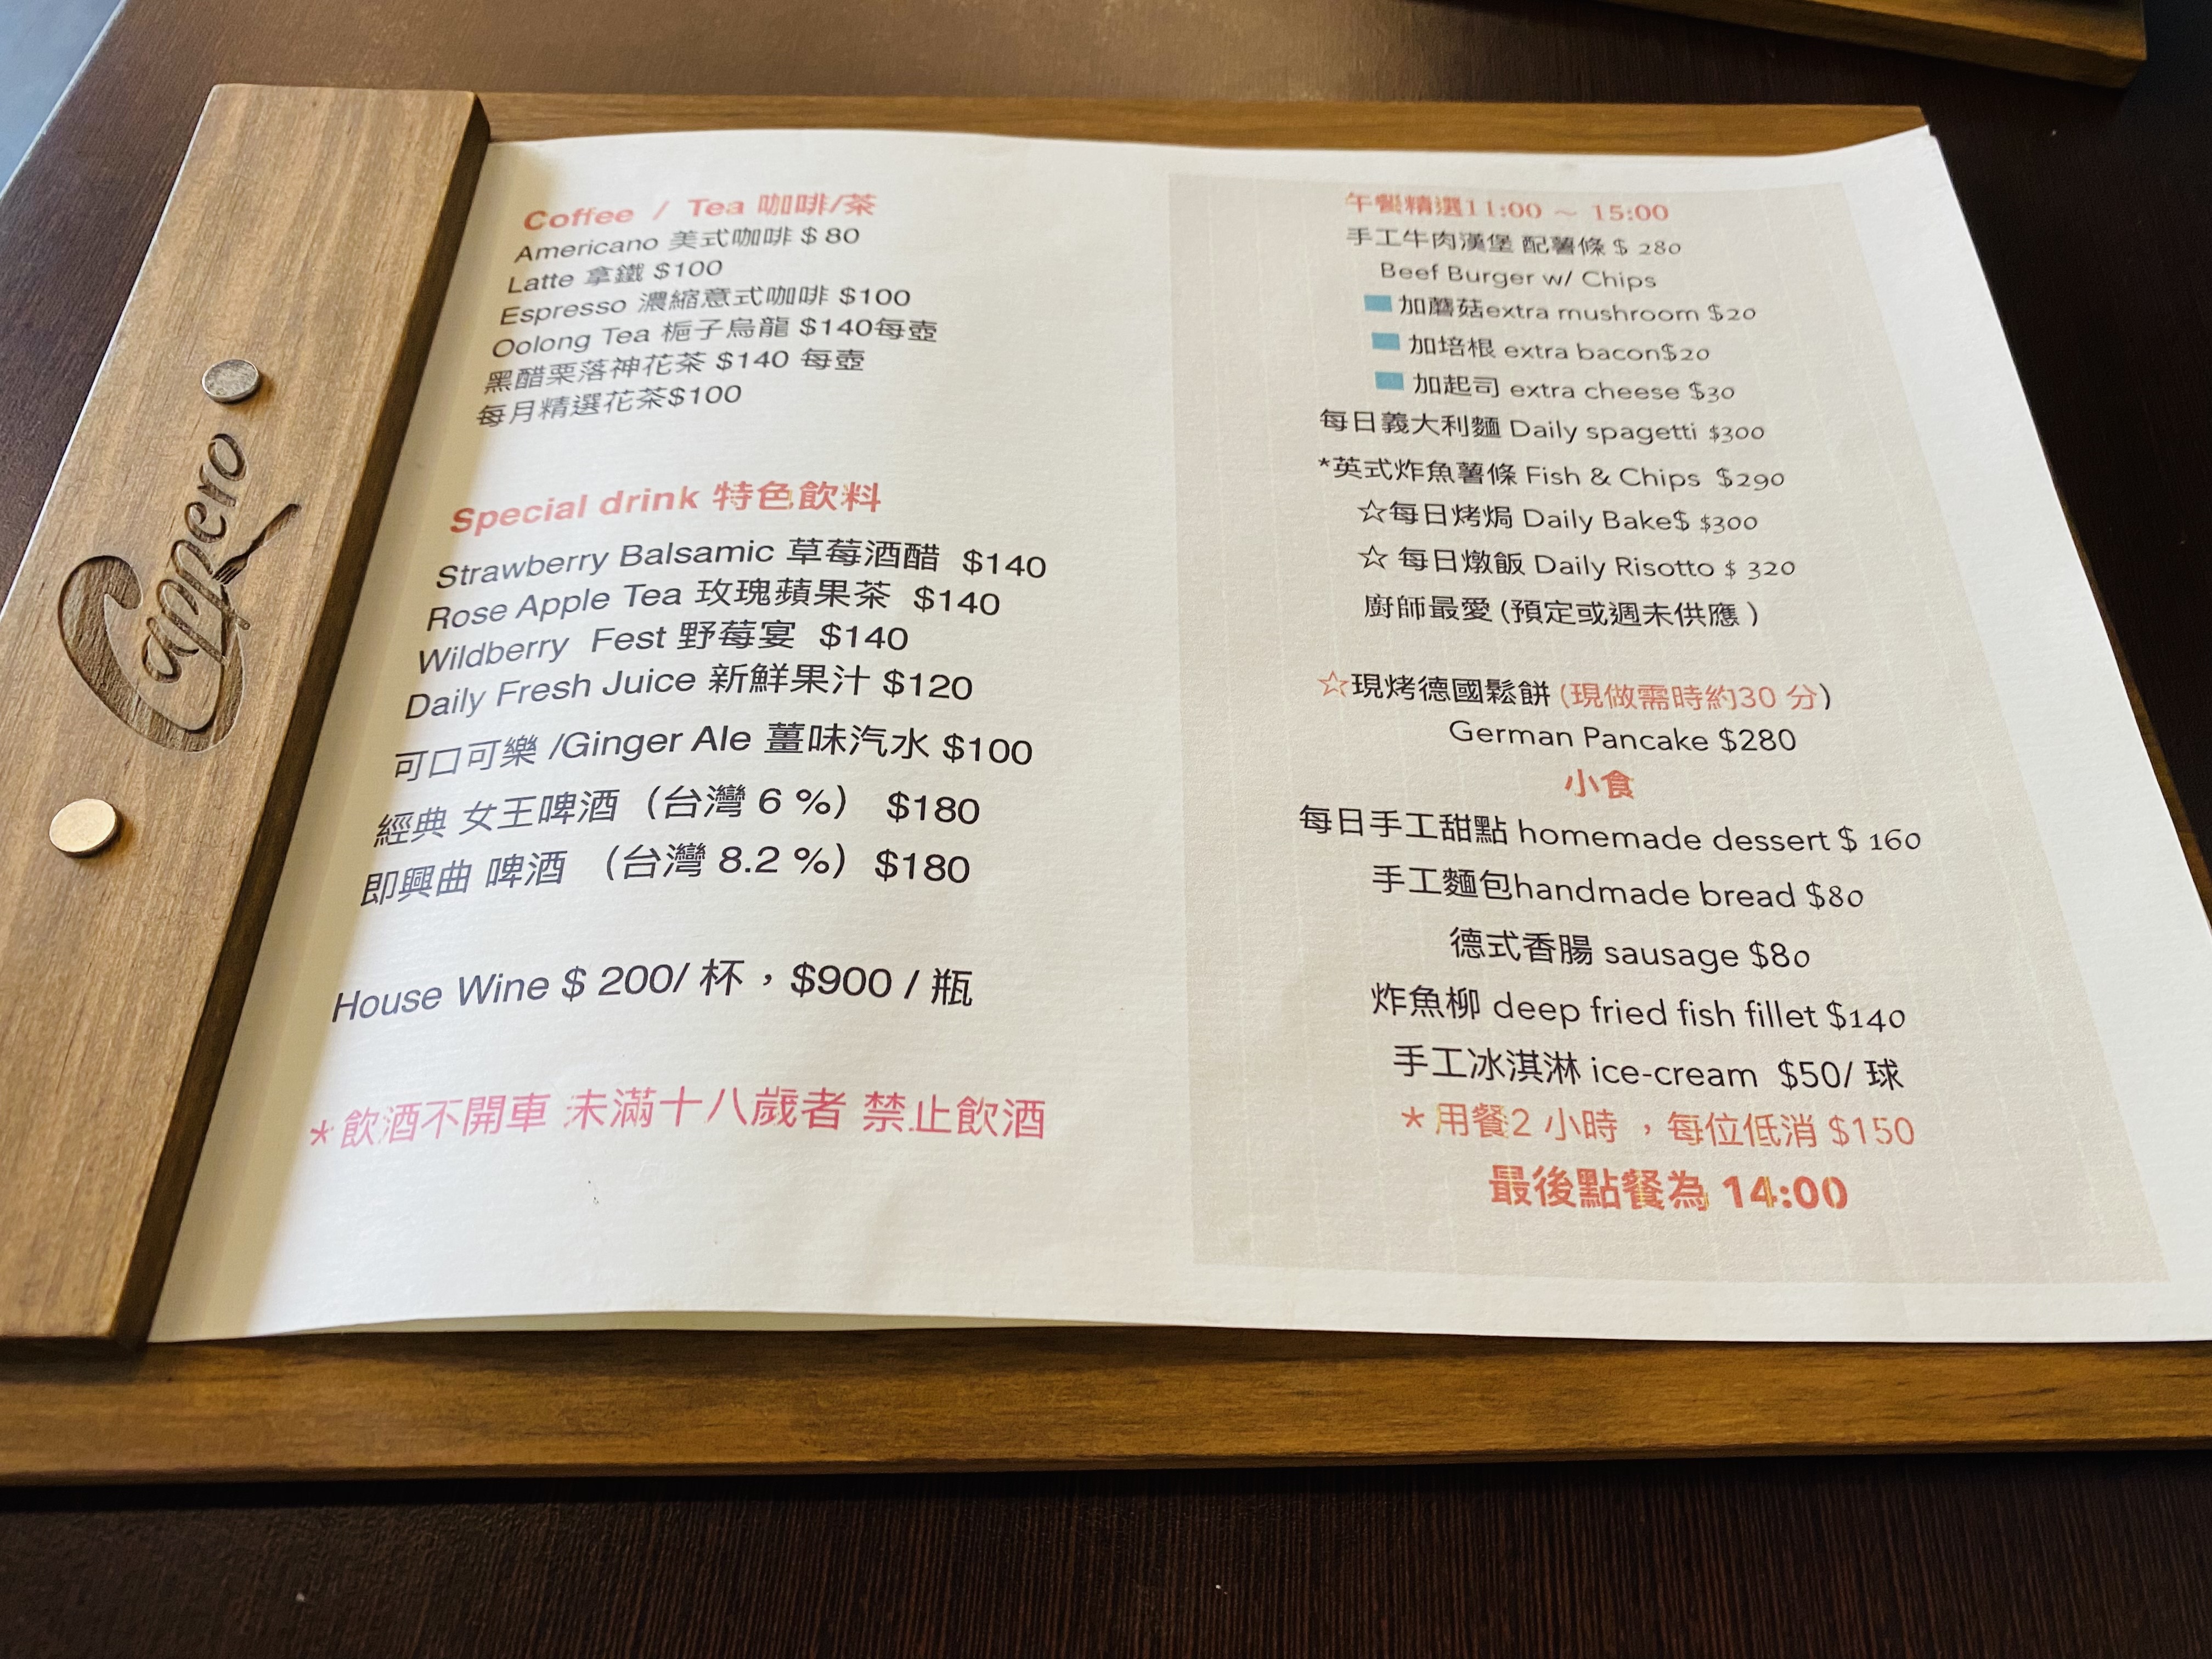 Cappero
Coffee / Tea 咖啡/茶
Americano 美式咖啡 $ 80
Latte 拿鐵 $100
Espresso 濃縮意式咖啡 $100
Oolong Tea 梔子烏龍 $140每壺
黑醋栗落神花茶 $140 每壺
每月精選花茶$100
Special drink 特色飲料
Strawberry Balsamic 草莓酒醋 $140
Rose Apple Tea 玫瑰蘋果茶 $140
Wildberry Fest 野莓宴 $140
Daily Fresh Juice 新鮮果汁 $120
可口可樂 /Ginger Ale 薑味汽水 $100
經典 女王啤酒 (台灣 6 %) $180
即興曲 啤酒 (台灣 8.2 %) $180
House Wine $ 200/ 杯，$900 / 瓶
*飲酒不開車 未滿十八歲者 禁止飲酒
午餐精選11:00 ~ 15:00
手工牛肉漢堡 配薯條 $ 280
Beef Burger w/ Chips
加蘑菇extra mushroom $20
加培根 extra bacon$20
加起司 extra cheese $30
每日義大利麵 Daily spagetti $300
*英式炸魚薯條 Fish & Chips $290
☆每日烤焗 Daily Bake$ $300
☆ 每日燉飯 Daily Risotto $ 320
廚師最愛 (預定或週末供應 )
☆現烤德國鬆餅 (現做需時約30 分)
German Pancake $280
小食
每日手工甜點 homemade dessert $ 160
手工麵包handmade bread $80
德式香腸 sausage $80
炸魚柳 deep fried fish fillet $140
手工冰淇淋 ice-cream $50/ 球
* 用餐2 小時 ，每位低消 $150
最後點餐為 14:00